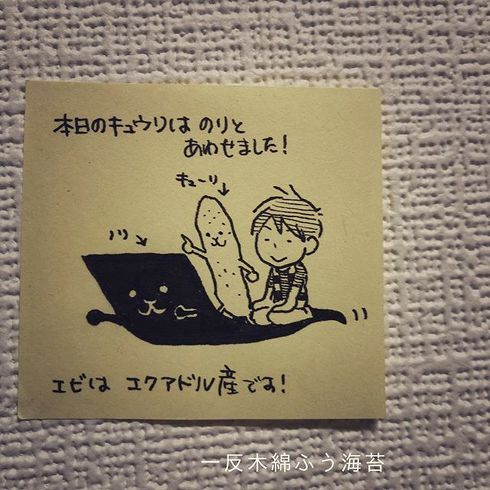 本日のキュウリは のりと
あわせました!
キューリ
ノリ
エビは エクアドル産です!
一反木綿ふう海苔